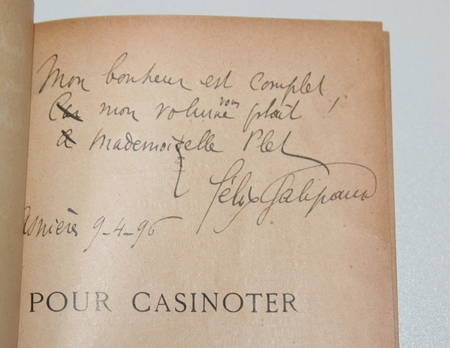 Mon bonheur est complet,
Car mon volume vous plaît !
à mademoiselle Plet
Félix Galipaux
Asnières 9-4-96
POUR CASINOTER